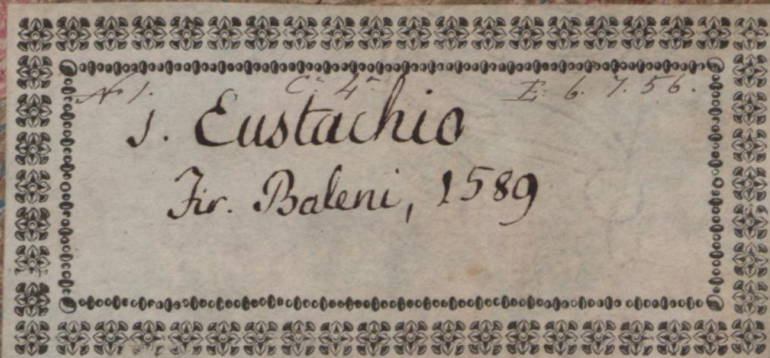 N 1. C. 4 E. 6. 7. 56.
S. Eustachio
Fir. Baleni, 1589